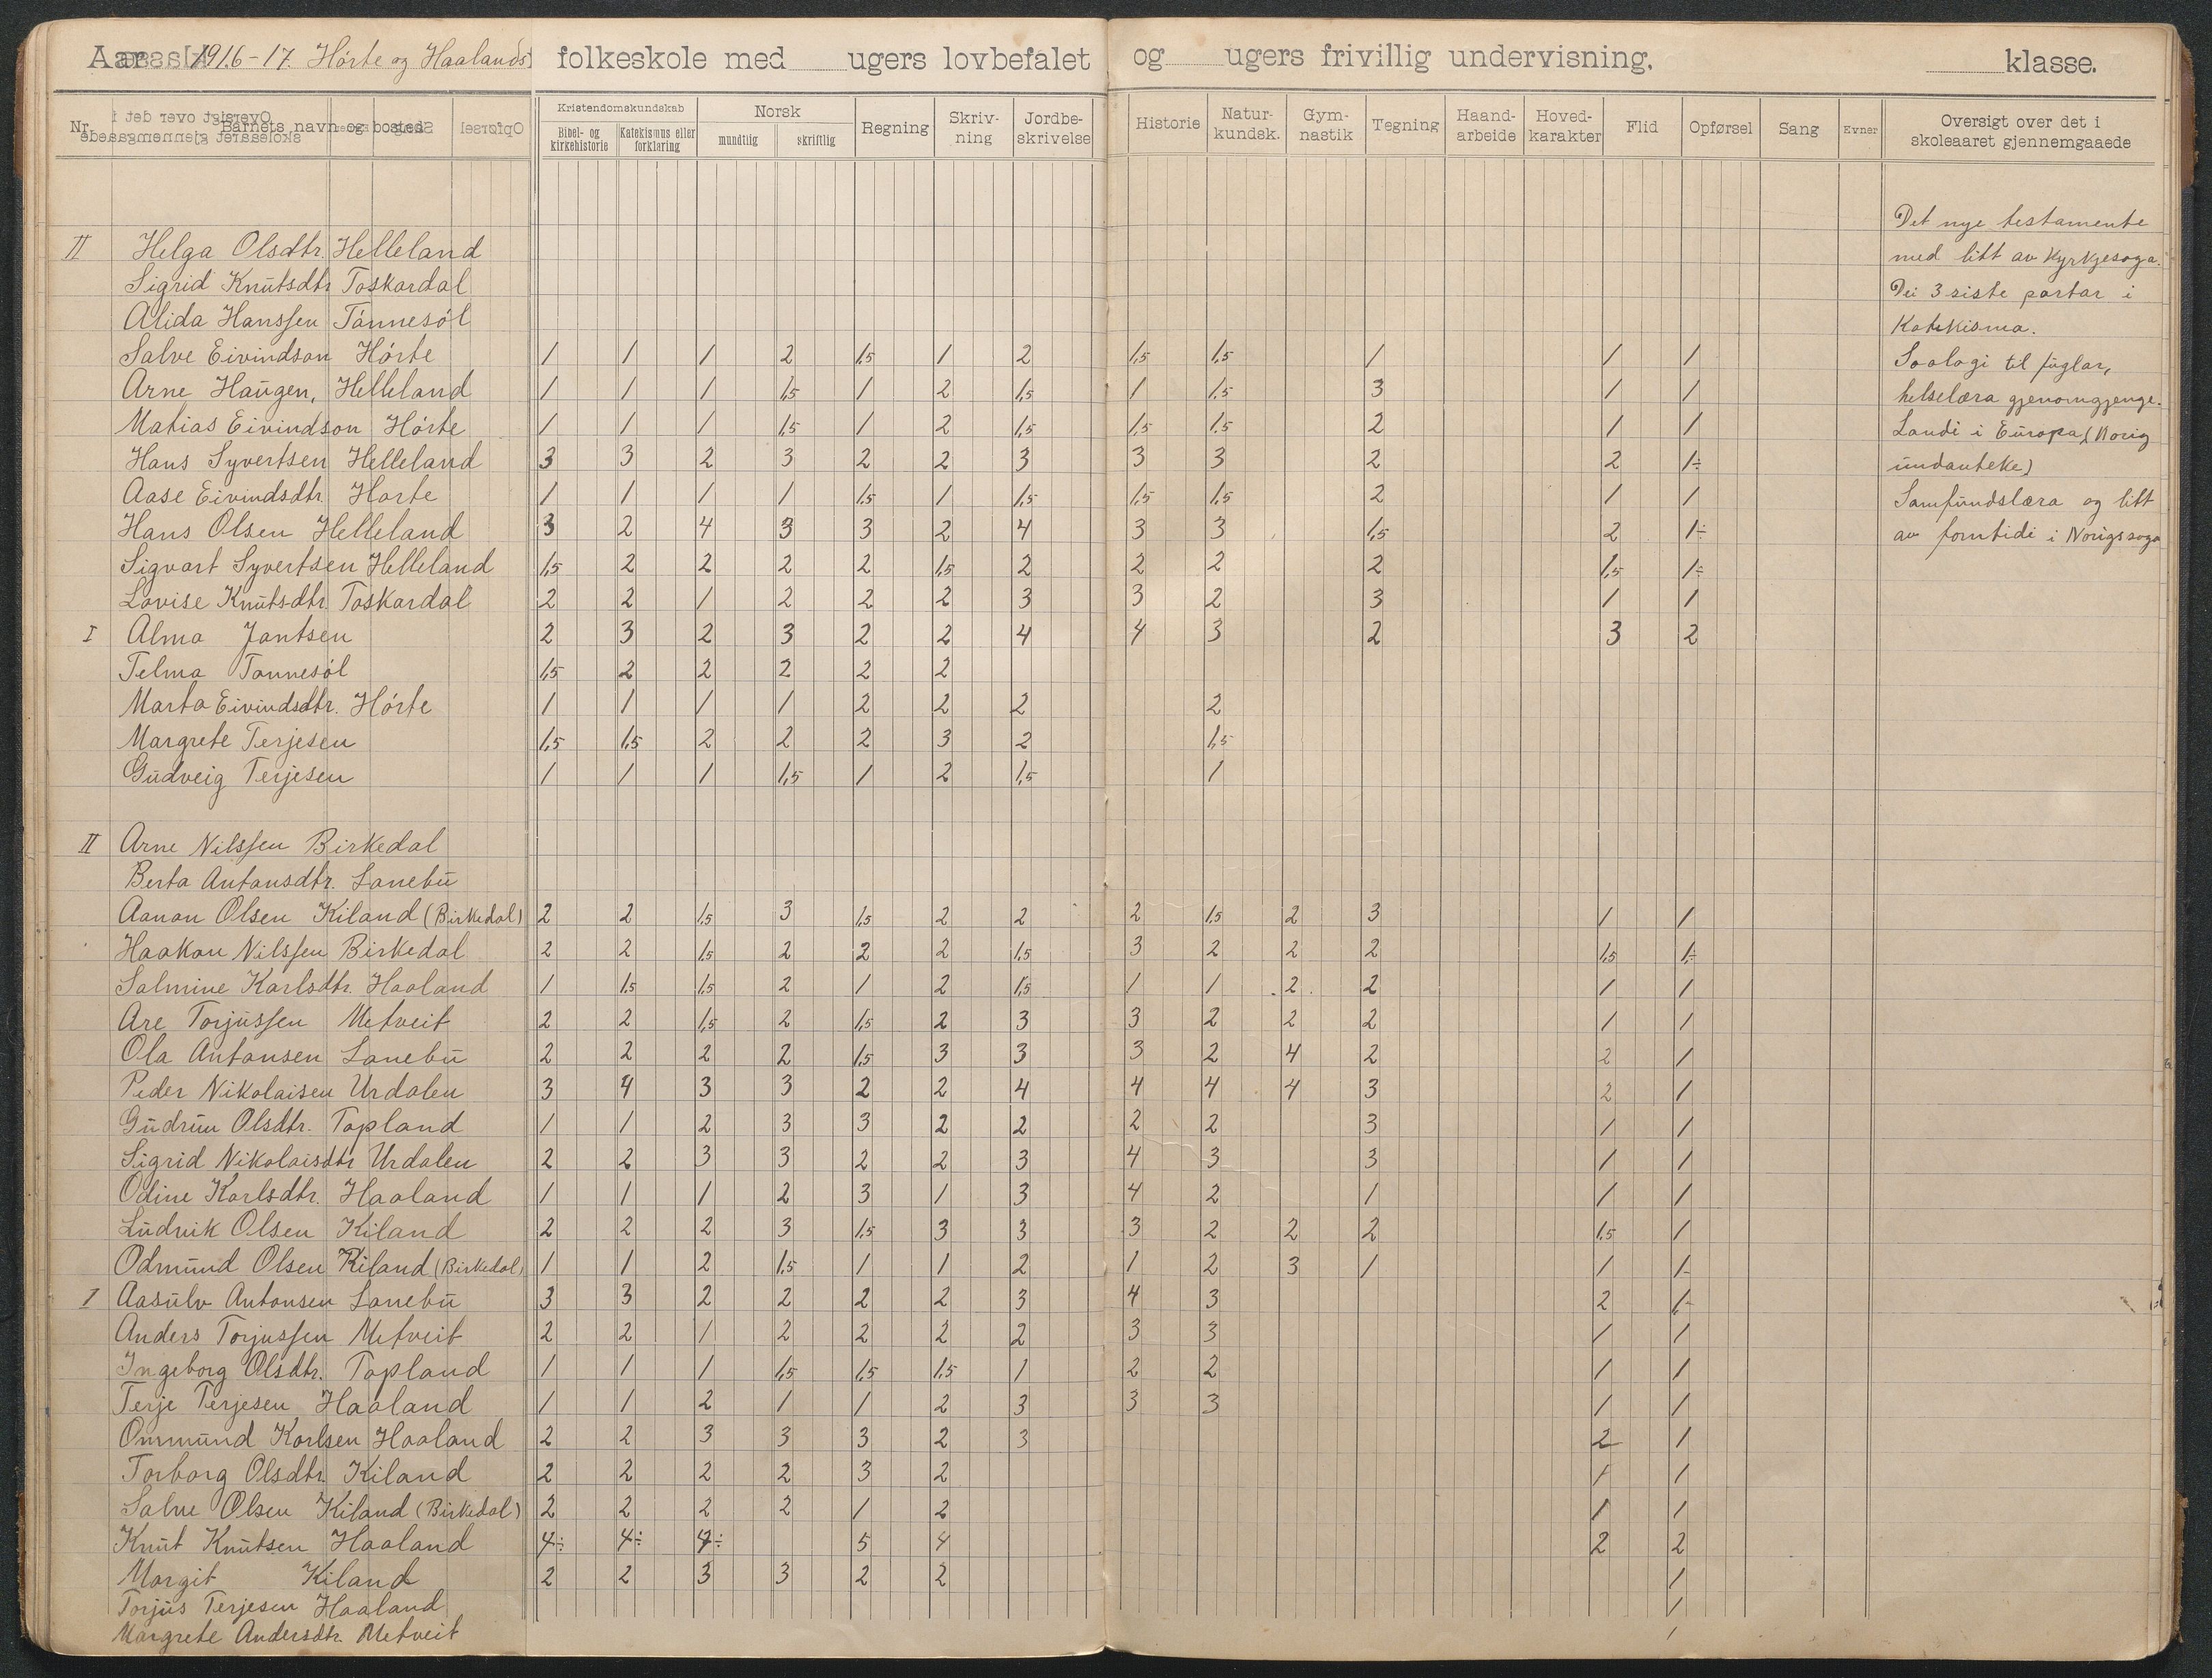 Aar 1916-17. Hórte og Haalands folkeskole med ugers lovbefalet og ugers frivillig undervisning. klasse.
Nr. Barnets navn og bosted Kristendomskundskab Norsk Regning Skriv-ning Jordbe-skrivelse Historie Natur-kundsk. Gym-nastik Tegning Haand-arbeide Hoved-karakter Flid Opførsel Sang Evner Oversigt over det i skoleaaret gjennemgaaede
Bibel- og kirkehistorie Katekismus eller forklaring mundtlig skriftlig
II Helga Olsdtr. Helleland
Sigrid Knutsdtr Toskardal
Alida Hanssen Tánnesól
Salve Eivindson Hórte 1 1 1 2 1,5 1 2 1,5 1,5 1 1 1
Arne Haugen, Helleland 1 1 1 1,5 1 2 1,5 1 1,5 3 1 1
Matias Eivindson Hórte 1 1 1 1,5 1 2 1,5 1,5 1,5 2 1 1
Hans Syvertsen Helleland 3 3 2 3 2 2 3 3 3 2 2 1÷
Aase Eivindsdtr Horte 1 1 1 1 1,5 1 1,5 1,5 1,5 2 1 1
Hans Olsen Helleland 3 2 4 3 3 2 4 3 3 1,5 2 1÷
Sigvart Syvertsen Helleland 1,5 2 2 2 2 1,5 2 2 2 2 1,5 1÷
Lovise Knutsdtr. Toskardal 2 2 1 2 2 2 3 3 2 3 1 1
I Alma Jantsen 2 3 2 3 2 2 4 4 3 2 3 2
Telma Tannesól 1,5 2 2 2 2 2
Marta Eivindsdtr. Hórte 1 1 1 1 2 2 2 2
Margrete Terjesen 1,5 1,5 2 2 2 3 2 1,5
Gudveig Terjesen 1 1 1 1,5 1 2 1,5 1
II Arne Nilssen Birkedal
Berta Antonsdtr. Lanebu
Aanon Olsen Kiland (Birkedal) 2 2 1,5 3 1,5 2 2 2 1,5 2 3 1 1
Haakon Nilssen Birkedal 2 2 1,5 2 2 2 1,5 3 2 2 2 1,5 1÷
Salmine Karlsdtr. Haaland 1 1,5 1,5 2 1 2 1,5 1 1 2 2 1 1
Are Torjussen Metveit 2 2 1,5 2 1,5 2 3 3 2 2 2 1 1
Ola Antonsen Lanebu 2 2 2 2 1,5 3 3 3 2 4 2 2 1
Peder Nikolaisen Urdalen 3 4 3 3 2 2 4 4 4 4 3 2 1
Gudrun Olsdtr. Topland 1 1 2 3 3 2 2 2 2 3 1 1
Sigrid Nikolaisdtr Urdalen 2 2 3 3 2 2 3 4 3 3 1 1
Odine Karlsdtr. Haaland 1 1 1 2 3 1 3 4 2 1 1 1
Ludvik Olsen Kiland 2 2 2 3 1,5 3 3 3 2 2 2 1,5 1
Odmund Olsen Kiland (Birkedal) 1 1 2 1,5 1 1 2 1 2 3 1 1 1-
I Aasulv Antonsen Lanebu 3 3 2 2 2 2 3 4 3 2 1-
Anders Torjussen Metveit 2 2 1 2 2 2 2 3 3 1 1
Ingeborg Olsdtr. Topland 1 1 1 1,5 1,5 1,5 1 2 2 1 1
Terje Terjesen Haaland 1 1 2 1 1 2 3 3 3 1 1
Ommund Karlsen Haaland 2 2 3 3 3 2 3 2 1
Torborg Olsdtr. Kiland 2 2 2 2 3 2 1 1
Salve Olsen Kiland (Birkedal) 2 2 2 2 1 2 1 1
Knut Knutsen Haaland 4÷ 4÷ 4÷ 5 4 2 2
Margit Kiland 2 2 3 3 2 2 1
Torjus Terjesen Haaland 1
Margrete Andersdtr. Metveit 1
Det nye testamente
med litt av kyrkjesoga.
Dei 3 siste partar i
Katekisma.
Soologi til fuglar,
helselæra gjenomgjenge.
Landi i Europa (Norig
undanteke)
Samfundslæra og litt
av forntidi i Norigssoga